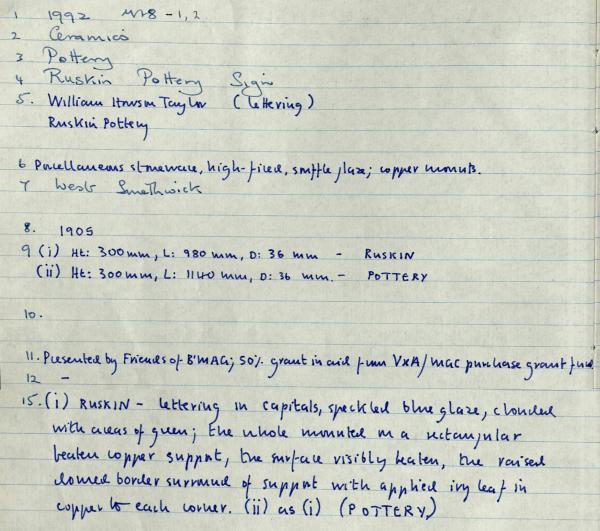 1 1992 M28 - 1, 2
2 Ceramics
3 Pottery
4 Ruskin Pottery Sign
5. William Howson Taylor (lettering)
Ruskin Pottery
6 Porcellaneous stoneware, high-fired, souffle glaze; copper mounts.
7 West Smethwick
8. 1905
9 (i) Ht: 300mm, L: 980 mm, D: 36 mm - RUSKIN
(ii) Ht: 300mm, L: 1140 mm, D: 36 mm. - POTTERY
10.
11. Presented by Friends of B'MAG; 50% grant in aid from V&A/MGC purchase grant fund
12 -
15. (i) RUSKIN - lettering in capitals, speckled blue glaze, clouded
with areas of green; the whole mounted on a rectangular
beaten copper support, the surface visibly beaten, the raised
domed border surround of support with applied ivy leaf in
copper to each corner. (ii) as (i) (POTTERY,)